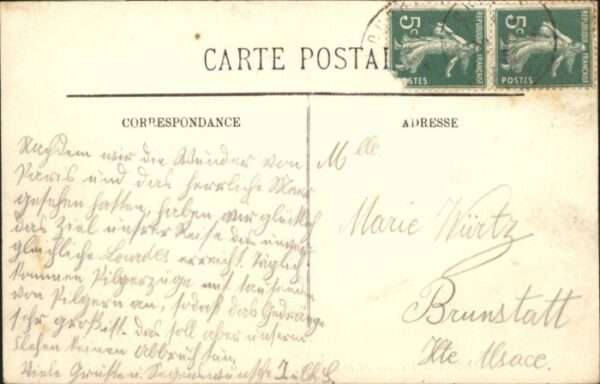 CARTE POSTAL
5c
REPUBLIQUE FRANÇAISE
POSTES
5c
REPUBLIQUE FRANÇAISE
POSTES
CORRESPONDANCE
ADRESSE
Nachdem wir die Wunder von
Paris und das herrliche Meer
gesehen hatten, haben wir glücklich
das Ziel unsrer Reise das unver-
gleichliche Lourdes erreicht. Täglich
kommen Pilgerzüge mit tausenden
von Pilgern an, sodaß das Gedränge
sehr groß ist. das soll aber unserm
Flehen keinen Abbruch tun.
Viele Grüße u. Segenswünsche
Mlle
Marie Würtz
Brunstatt
Hte Alsace.